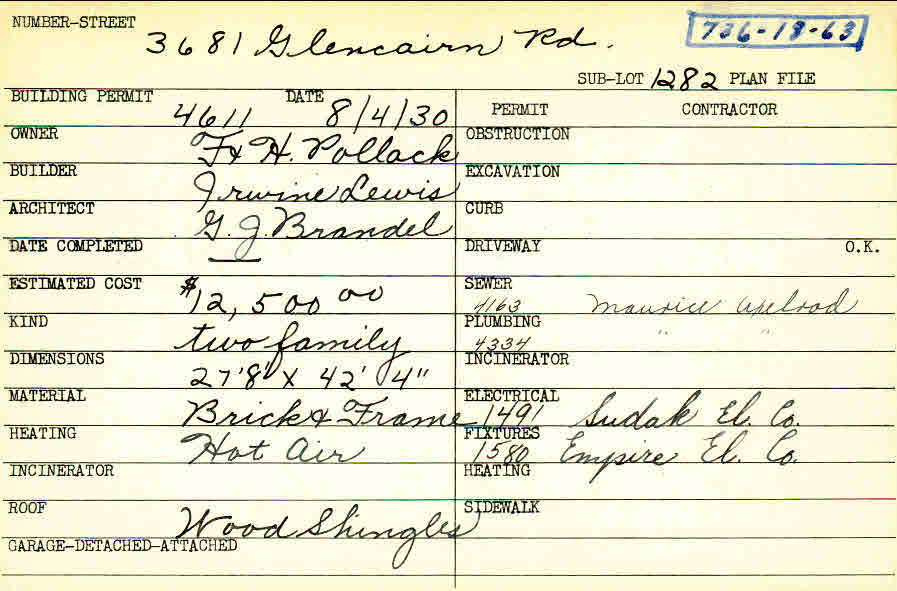 NUMBER-STREET 3681 Glencairn Rd. 736-18-63
SUB-LOT 1282 PLAN FILE
BUILDING PERMIT 4611 DATE 8/4/30 PERMIT CONTRACTOR
OWNER F & H. Pollack OBSTRUCTION
BUILDER Irwine Lewis EXCAVATION
ARCHITECT G. J. Brandel CURB
DATE COMPLETED — DRIVEWAY O.K.
ESTIMATED COST $12,500 00 SEWER 4163 Maurice Axelrod
KIND two family PLUMBING 4334 " "
DIMENSIONS 27'8" X 42' 4" INCINERATOR
MATERIAL Brick & Frame ELECTRICAL 1491 Sudak El. Co.
HEATING Hot Air FIXTURES 1580 Empire El. Co.
INCINERATOR HEATING
ROOF Wood Shingles SIDEWALK
GARAGE-DETACHED-ATTACHED